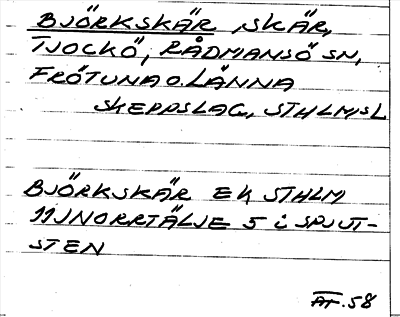 BJÖRKSKÄR, SKÄR,
TJOCKÖ, RÅDMANSÖ SN,
FRÖTUNA O. LÄNNA
SKEPPSLAG, STHLMSL
BJÖRKSKÄR EK STHLM
11J NORRTÄLJE 5 i SPJUT-
STEN
AF. 58